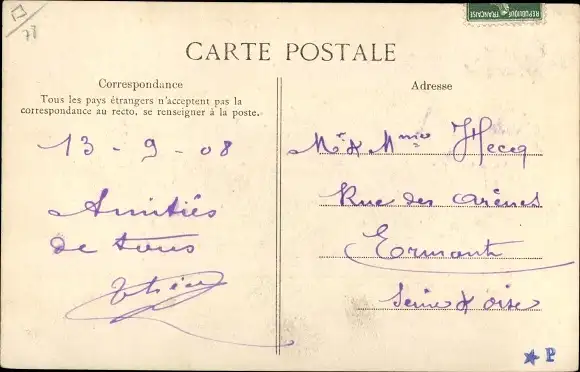 78
RÉPUBLIQUE FRANÇAISE
CARTE POSTALE
Correspondance
Tous les pays étrangers n'acceptent pas la
correspondance au recto, se renseigner à la poste.
13 - 9 - 08
Amitiés
de tous
Adresse
Mr & Mme Hecq
Rue des Arènes
Ermont
Seine & Oise
P